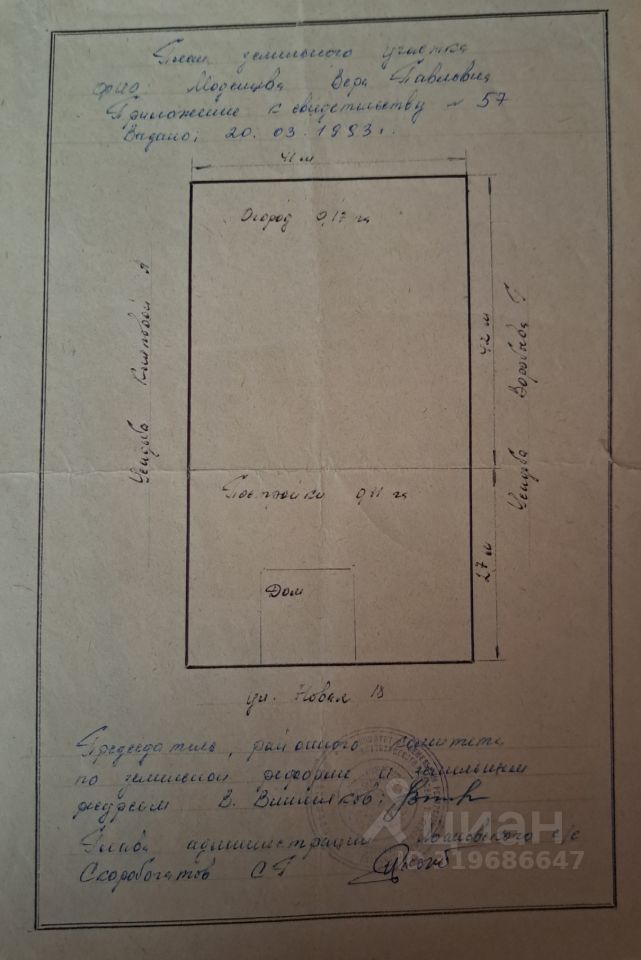 План земельного участка
ФИО: Вера Павловна
Приложение к свидетельству № 57
Выдано: 20.03.1993 г.
41 м
Огород 0,17 га
42 м
Усадьба А
Усадьба Воробьёва Г
Постройки 0,11 га
27 м
Дом
ул. Новая 18
Председатель, районного комитета
по земельной реформе и земельным
ресурсам В. Вишняков:
Глава администрации с/с
Скоробогатов С Г
циан
19686647